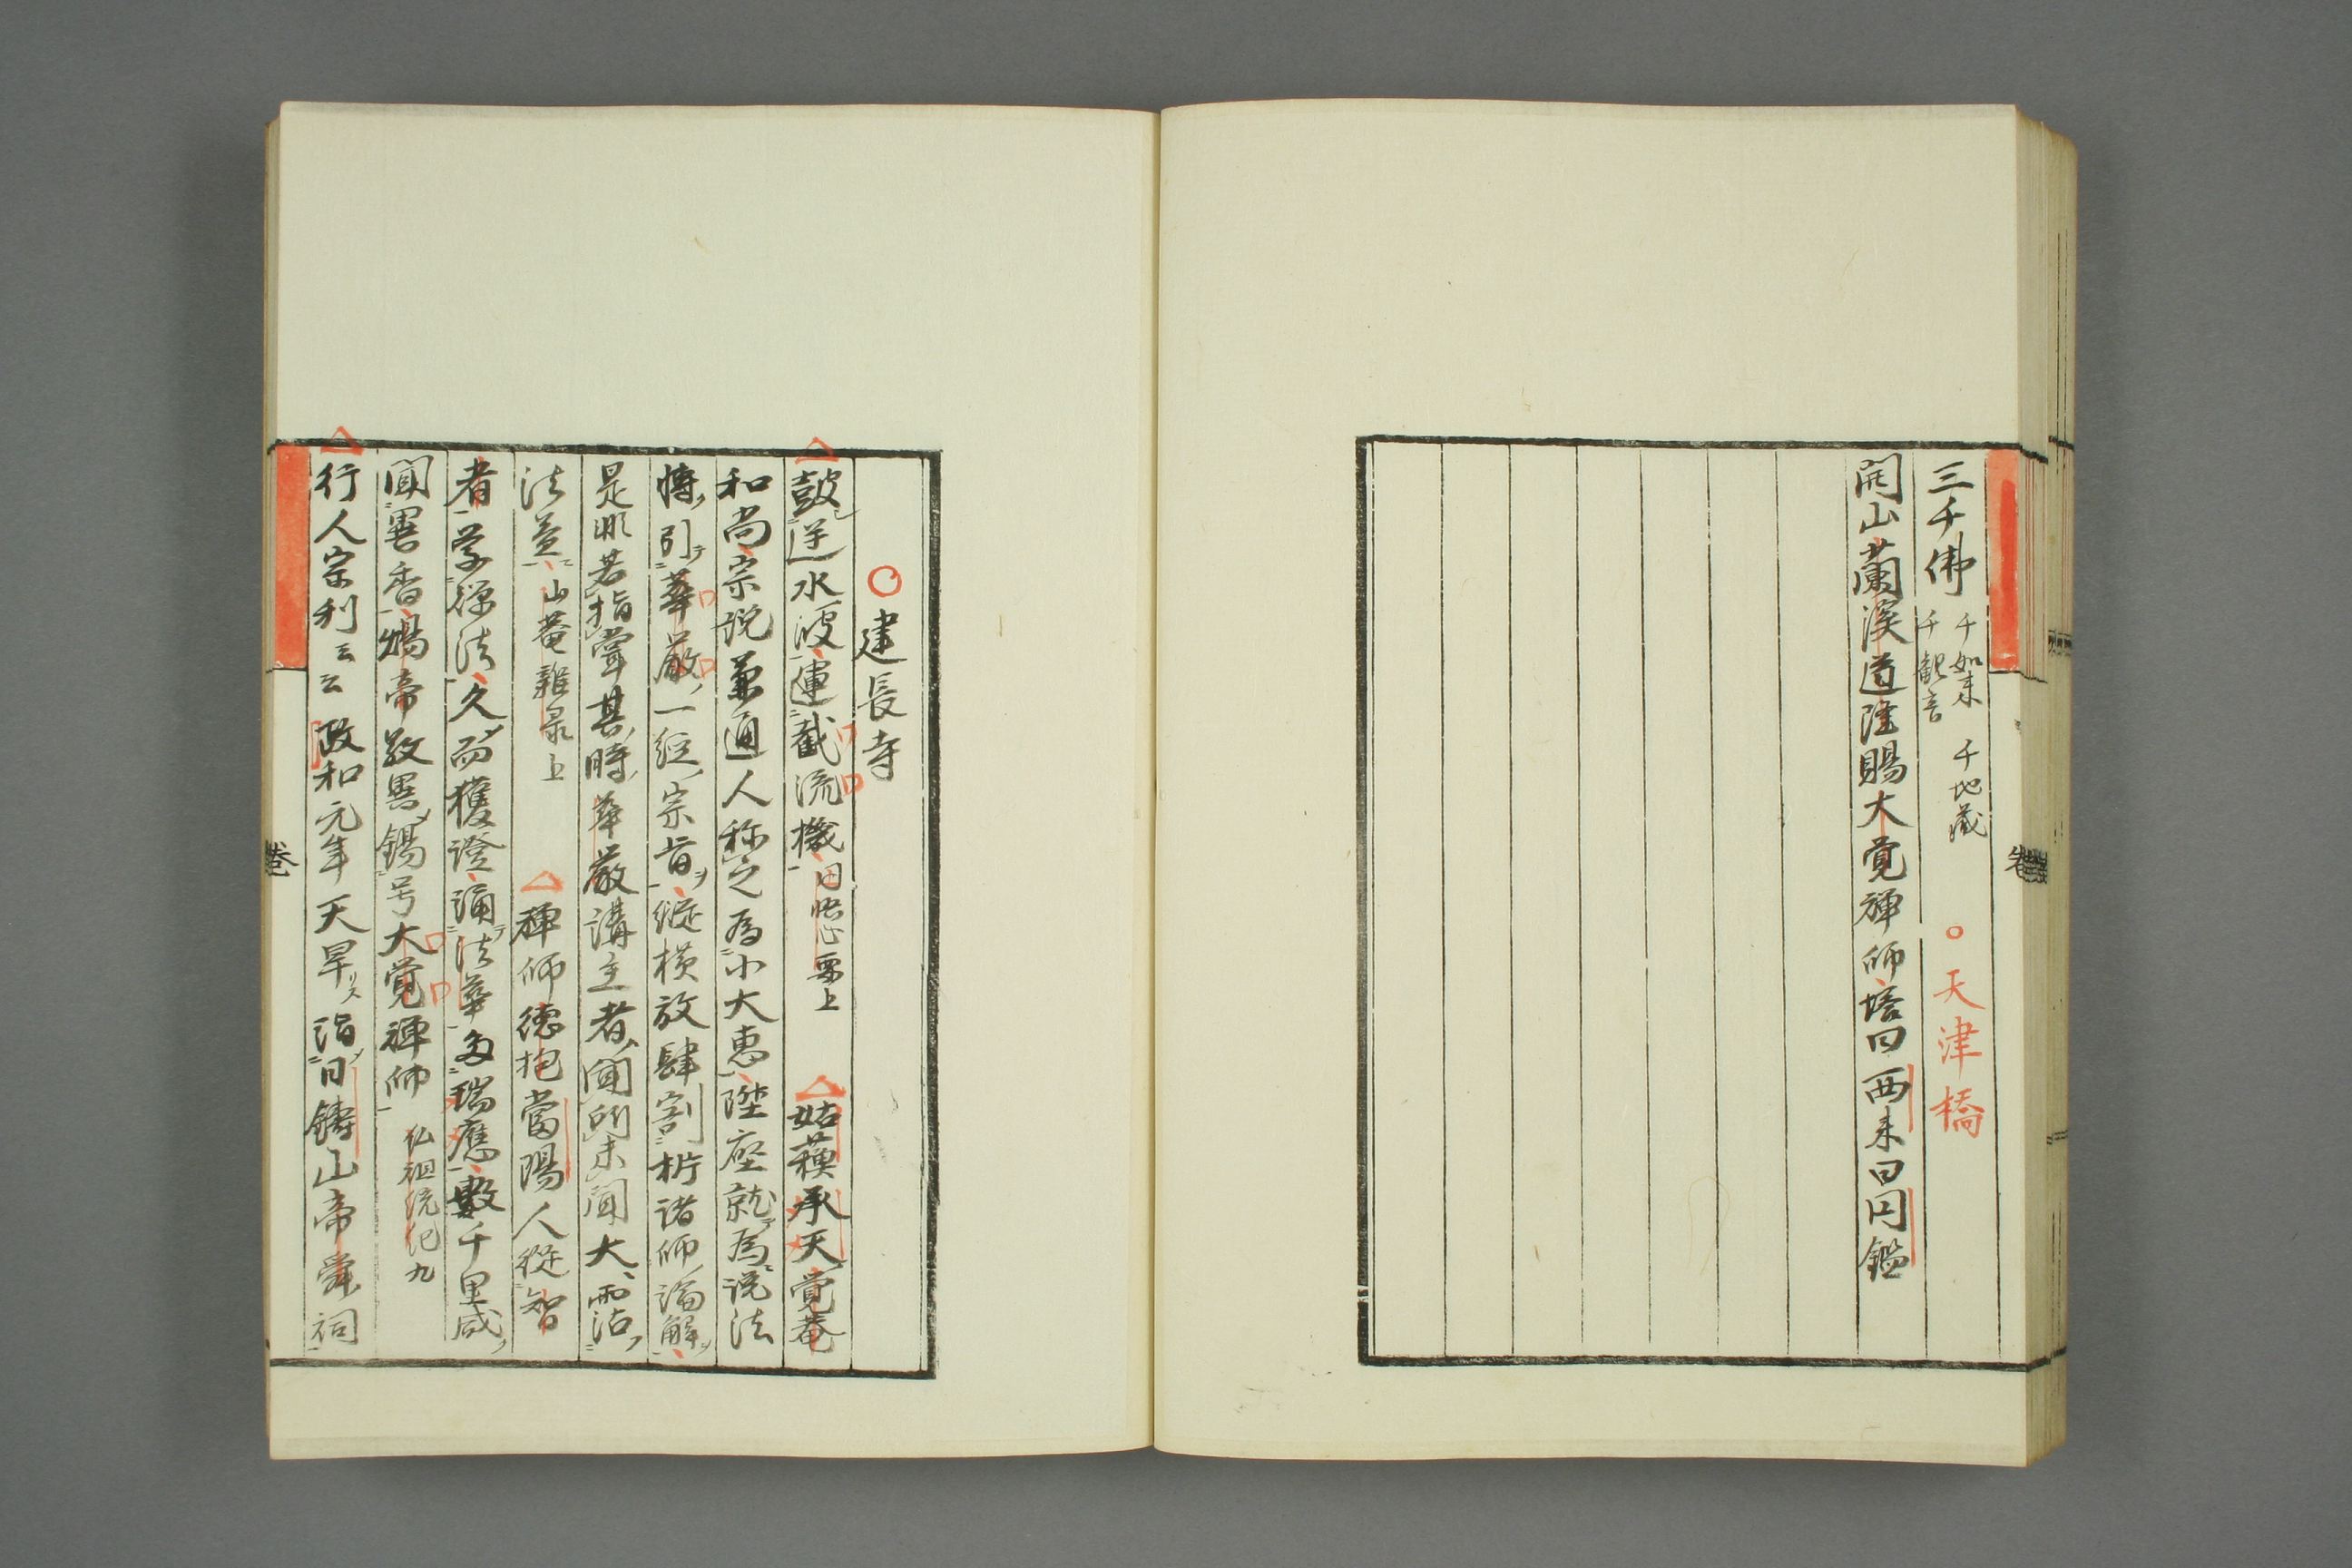 三千佛 千如来 千観音 千地蔵 天津橋
開山蘭溪道隆賜大覚禅師塔曰西来曰円鑑
建長寺
鼓逆水波運截流機 円悟心要上 姑蘓承天覚菴
和尚宗説兼通人称之為小大恵陞座就為説法
博引華厳一経宗旨縦横放肆割析諸師論解
是非若指掌其時華厳講主者聞所未聞大霑
法益 山菴雑录上 禅師徳抱當陽人從智
者学禅法久而獲證誦法華多瑞應數千里咸
聞異香煬帝敬異錫号大覚禅師 仏祖統紀九
行人宗利云云 政和元年天旱詣日鋳山帝舜祠
巻